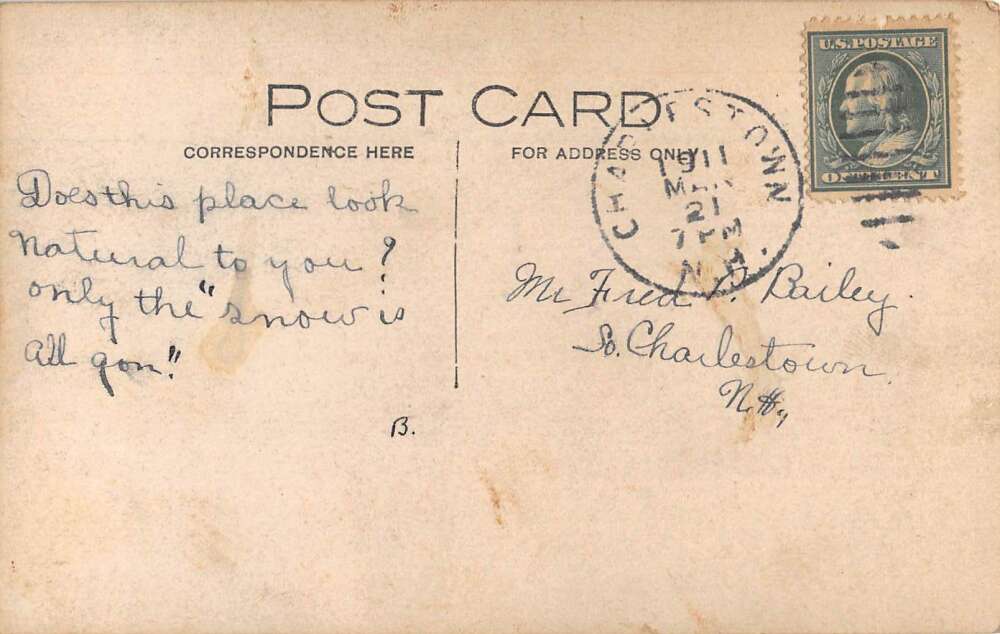 POST CARD
CORRESPONDENCE HERE
FOR ADDRESS ONLY
U.S. POSTAGE
ONE CENT
CHARLESTOWN
1911
MAR
21
7 PM
N.H.
Does this place look
Natural to you?
only the "snow is
all gon."
B.
Mr Fred P. Bailey.
So. Charlestown.
N.H.